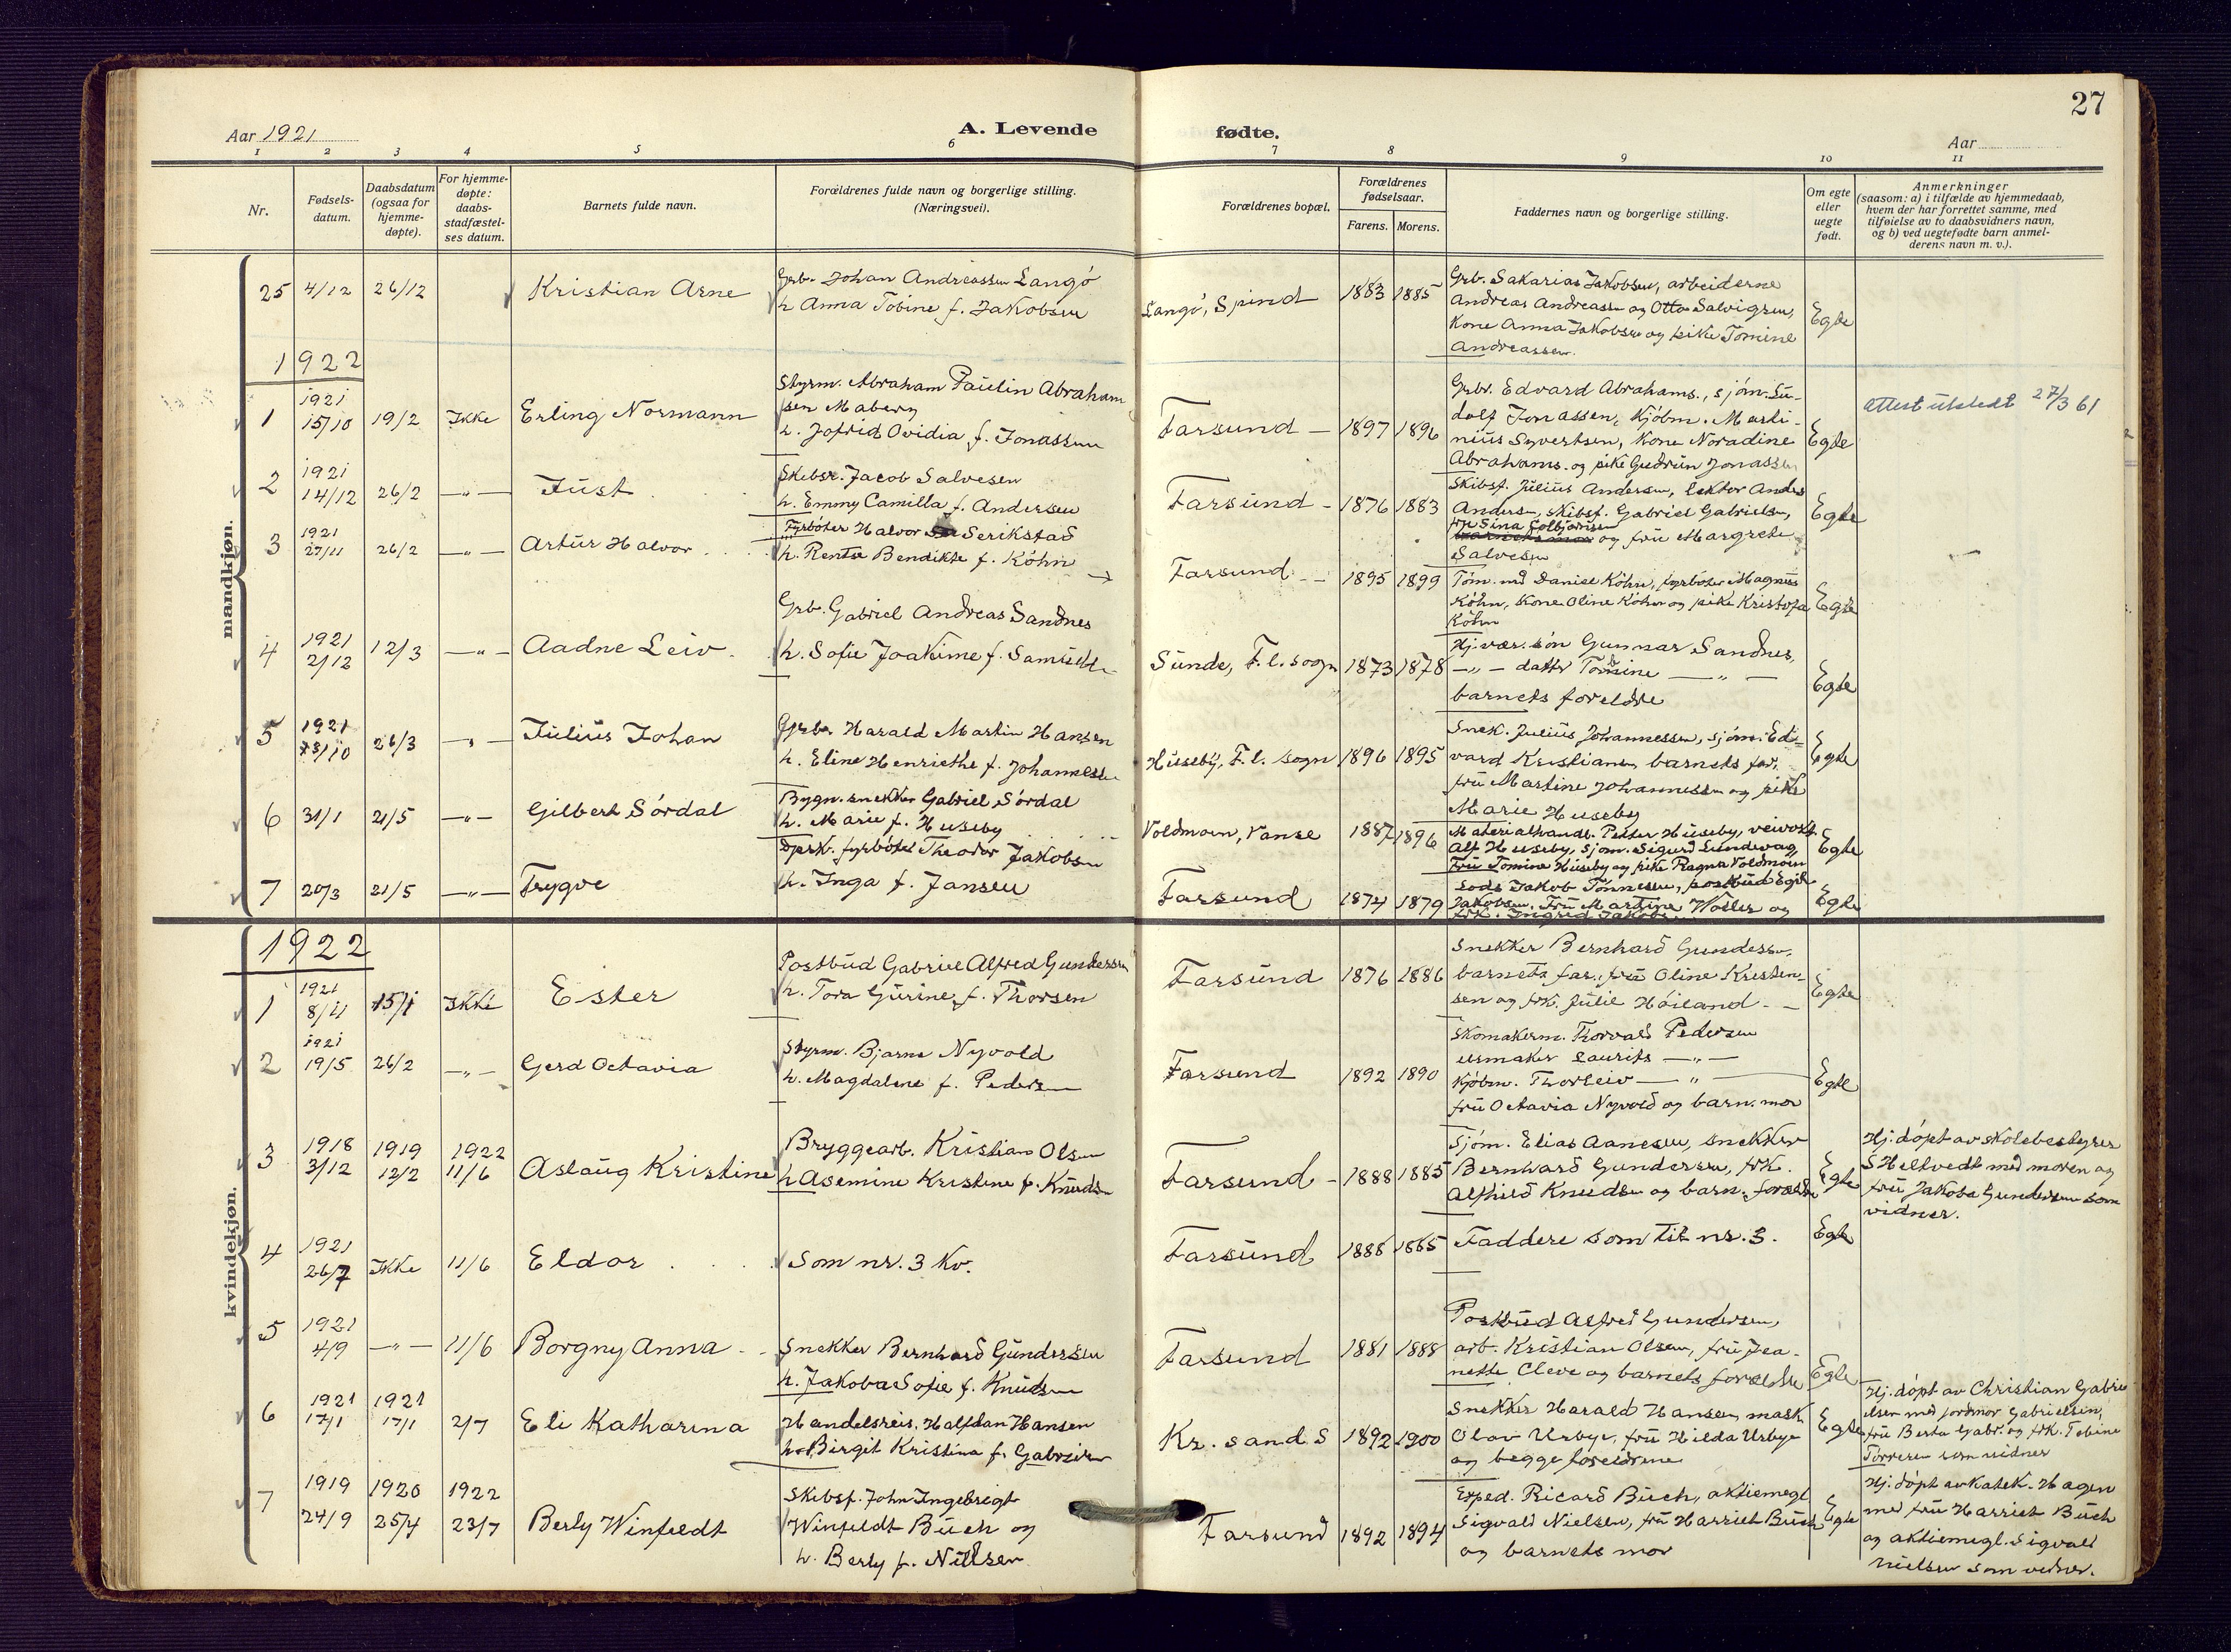 27
Aar 1921
A. Levende
fødte.
Aar
1 2 3 4 5 6 7 8 9 10 11
Nr.
Fødsels-
datum.
Daabsdatum
(ogsaa for
hjemme-
døpte).
For hjemme-
døpte:
daabs-
stadfæstel-
ses datum.
Barnets fulde navn.
Forældrenes fulde navn og borgerlige stilling.
(Næringsvei).
Forældrenes bopæl.
Forældrenes
fødselsaar.
Farens. Morens.
Faddernes navn og borgerlige stilling.
Om egte
eller
uegte
født.
Anmerkninger
(saasom: a) i tilfælde av hjemmedaab,
hvem der har forrettet samme, med
tilføielse av to daabsvidners navn,
og b) ved uegtefødte barn anmel-
derens navn m. v.).
mandkjøn.
25 4/12 26/12 Kristian Arne
Grb. Johan Andreassen Langø
h. Anna Tobine f. Jakobsen
Langø, Spind 1883 1885
Grb. Sakarias Jakobsen, arbeiderne
Andreas Andreassen og Otto Salvigsen,
Kone Anna Jakobsen og pike Tomine
Andreassen.
Egte
1922
1 1921 15/10 19/2 Ikke Erling Normann
Styrm. Abraham Paulin Abraham
sen Maberg
h. Jofrid Ovidia f. Jonassen
Farsund 1897 1896
Grbr. Edvard Abrahams., sjøm. Lu-
dolf Jonassen, Kjøbm. Marti-
nius Syvertsen, Kone Noradine
Abrahams. og pike Gudrun Jonassen
Egte
Attest utstedt 27/3 61
2 1921 14/12 26/2 -"- Just
Skibsr. Jacob Salvesen
h. Emmy Camilla f. Andersen
Farsund 1876 1883
Skibsf. Julius Andersen, lektor Anders
Andersen, skibsf. Gabriel Gabrielsen,
frk Sina Colbjørnsen
og fru Margrete
Salvesen
Egte
3 1921 27/11 26/2 -"- Artur Halvor
Fyrbøter Halvor Serikstad
h. Renta Bendikte f. Køhn
Farsund 1895 1899
Tøm. md Daniel Køhn, fyrbøter Magnus
Køhn, Kone Oline Køhn og pike Kristofa
Køhn
Egte
4 1921 2/12 12/3 -"- Aadne Leiv
Grb. Gabriel Andreas Sandnes
h. Sofie Joakime f. Samuelsen
Sunde, F. l. sogn 1873 1878
Hj. vær. søn Gunnar Sandnes,
-"- datter Tomine -"-
barnets foreldre
Egte
5 1921 /10 26/3 -"- Julius Johan
Grbr. Harald Martin Hansen
h. Eline Henriethe f. Johannessen
Huseby, F. l. sogn 1896 1895
Snek. Julius Johannessen, sjøm. Ed-
vard Kristiansen, barnets far,
fru Martine Johannessen og pike
Marie Huseby
Egte
6 31/1 21/5 -"- Gilbert Sørdal
Bygn. snekker Gabriel Sørdal
h. Marie f. Huseby
Voldmoen, Vanse 1887 1896
Materialhandl. Petter Huseby, veivokt.
Alf Huseby, sjøm. Sigurd Lundevag,
Fru Tomine Huseby og pike Ragna Voldmoen
Egte
7 20/3 21/5 -"- Trygve
fyrbøter Theodor Jakobsen
h. Inga f. Jansen
Farsund 1874 1879
Lods Jakob Tønnesen, postbud Egil
Jakobsen, Fru Martine Woller og
frk. Ingrid Jakobs.
Egte
kvindekjøn.
1922
1 1921 8/11 15/1 Ikke Ester
Postbud Gabriel Alfred Gundersen
h. Tora Gurine f. Thorsen
Farsund 1876 1886
Snekker Bernhard Gundersen,
barnets far, fru Oline Kristen-
sen og frk. Julie Høiland
Egte
2 1921 19/5 26/2 -"- Gerd Octavia
Styrm. Bjarne Nyvold
h. Magdalene f. Pedersen
Farsund 1892 1890
Skomakerm. Thorvald Pedersen
urmaker Laurits -"-
Kjøbm. Thorleiv -"-
fru Octavia Nyvold og barn. mor
Egte
3 1918 3/12 1919 12/2 1922 11/6 Aslaug Kristine
Bryggearb. Kristian Olsen
h. Asemine Kristine f. Knudsen
Farsund 1888 1885
Sjøm. Elias Aanesen, snekker
Bernhard Gundersen, frk.
Alfhild Knudsen og barn. foreldre
Egte
Hj. døpt av skolebestyrer
S Heltvedt med moren og
fru Jakoba Gundersen som
vidner.
4 1921 26/7 Ikke 11/6 Eldor
Som nr. 3 Kv.
Farsund 1888 1885
Faddere som til nr. 3.
Egte
5 1921 4/9 -"- 11/6 Borgny Anna
Snekker Bernhard Gundersen
h. Jakoba Sofie f. Knudsen
Farsund 1881 1888
Postbud Alfred Gundersen,
arb. Kristian Olsen, fru Jea-
nette Cleve og barnets foreldre
Egte
6 1921 17/1 1921 17/1 2/7 Eli Katharina
Handelsreis. Halfdan Hansen
h. Birgit Kristina f. Gabrielsen
Kr. sand S 1892 1900
Snekker Harald Hansen, mask.
Olav Urbye, fru Hilda Urbye
og begge foreldrene
Egte
Hj. døpt av Christian Gabri-
elsen med jordmor Gabrielsen,
fru Berta Gabr. og frk. Tobine
Torresen som vidner
7 1919 24/9 1920 25/4 1922 23/7 Berly Winfeldt
Skibsf. John Ingebrigt
Winfeldt Buch og
h. Berly f. Nielsen
Farsund 1892 1894
Exped. Ricard Buch, aktiemegl.
Sigvald Nielsen, fru Harriet Buch
og barnets mor
Egte
Hj. døpt av Katek. Hagen
med fru Harriet Buch
og aktiemegl. Sigvald
Nielsen som vidner.